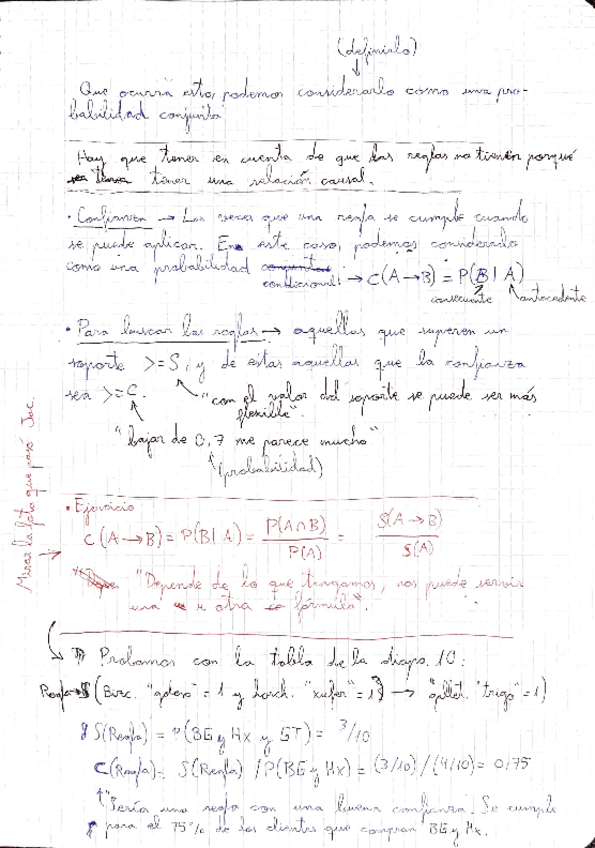 (definirlo)
Que ocurra esto, podemos considerarlo como una pro-
babilidad conjunta
Hay que tener en cuenta de que las reglas no tienen porqué
tener una relación causal.
• Confianza → Las veces que una regla se cumple cuando
se puede aplicar. En este caso, podemos considerarlo
como una probabilidad conjunta
condicional: → C(A→B) = P(B|A)
consecuente antecedente
• Para buscar las reglas → aquellas que superen un
soporte >=S, y de estas aquellas que la confianza
sea >=C.
"con el valor del soporte se puede ser más
flexible"
"bajar de 0,7 me parece mucho"
(probabilidad)
Mirar la foto que pasó Joc.
• Ejercicio
C(A→B) = P(B|A) = P(A∩B) / P(A) = S(A→B) / S(A)
"Depende de lo que tengamos, nos puede servir
una u otra fórmula".
Probamos con la tabla de la diapo. 10:
Regla → (Bizc. "goloso" = 1 y horch. "xufer" = 1) → "gallet. "trigo" = 1)
S(Regla) = P(BG y Hx y GT) = 3/10
C(Regla) = S(Regla) / P(BG y Hx) = (3/10) / (4/10) = 0,75
"Sería una regla con una buena confianza. Se cumple
para el 75% de los clientes que compran BG y Hx.